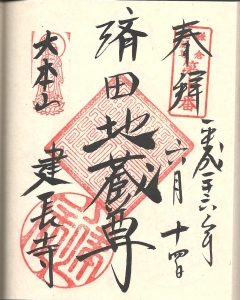 奉拝
平成二十六年
六月十四日
済田地蔵尊
大本山
建長寺